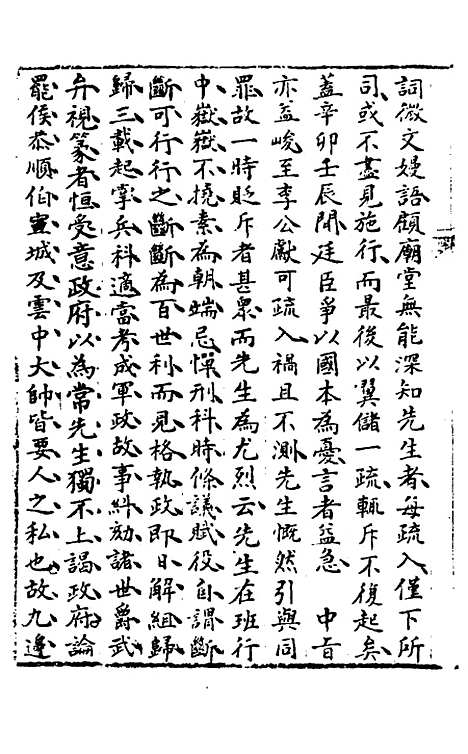 詞微文嫚語顧廟堂無能深知先生者每疏入僅下所
司或不盡見施行而最後以翼儲一疏輒斥不復起矣
蓋辛卯壬辰間廷臣爭以國本為憂言者益急　中旨
亦益峻至李公獻可疏入禍且不測先生慨然引與同
罪故一時貶斥者甚衆而先生為尤烈云先生在班行
中嶽嶽不撓素為朝端忌憚刑科時條議賦役自謂斷
斷可行行之斷斷為百世利而見格執政即日解組歸
歸三載起掌兵科適當考成軍政故事糾劾諸世爵武
弁視篆者恒受意政府以為常先生獨不上謁政府論
罷侯恭順伯宣城及雲中大帥皆要人之私也故九邊